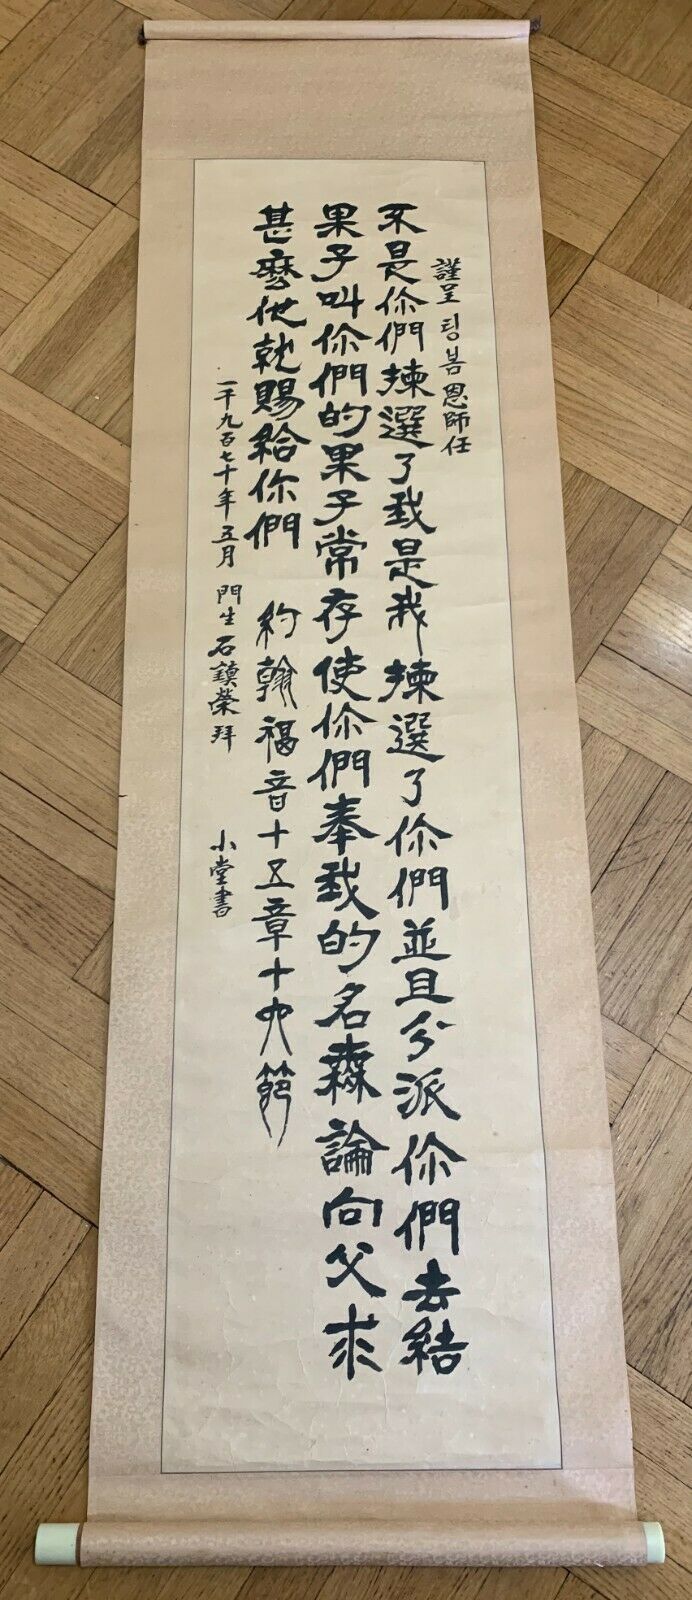 謹呈 팅 봄 恩師任
不是你們揀選了我是我揀選了你們並且分派你們去結
果子叫你們的果子常存使你們奉我的名無論向父求
甚麼他就賜給你們 約翰福音十五章十六節
一千九百七十年五月 門生 石鎮榮 拜 小堂書